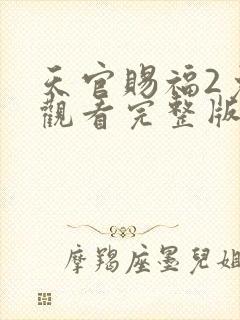 天官賜福2
觀看完整版
摩羯座墨兒姐